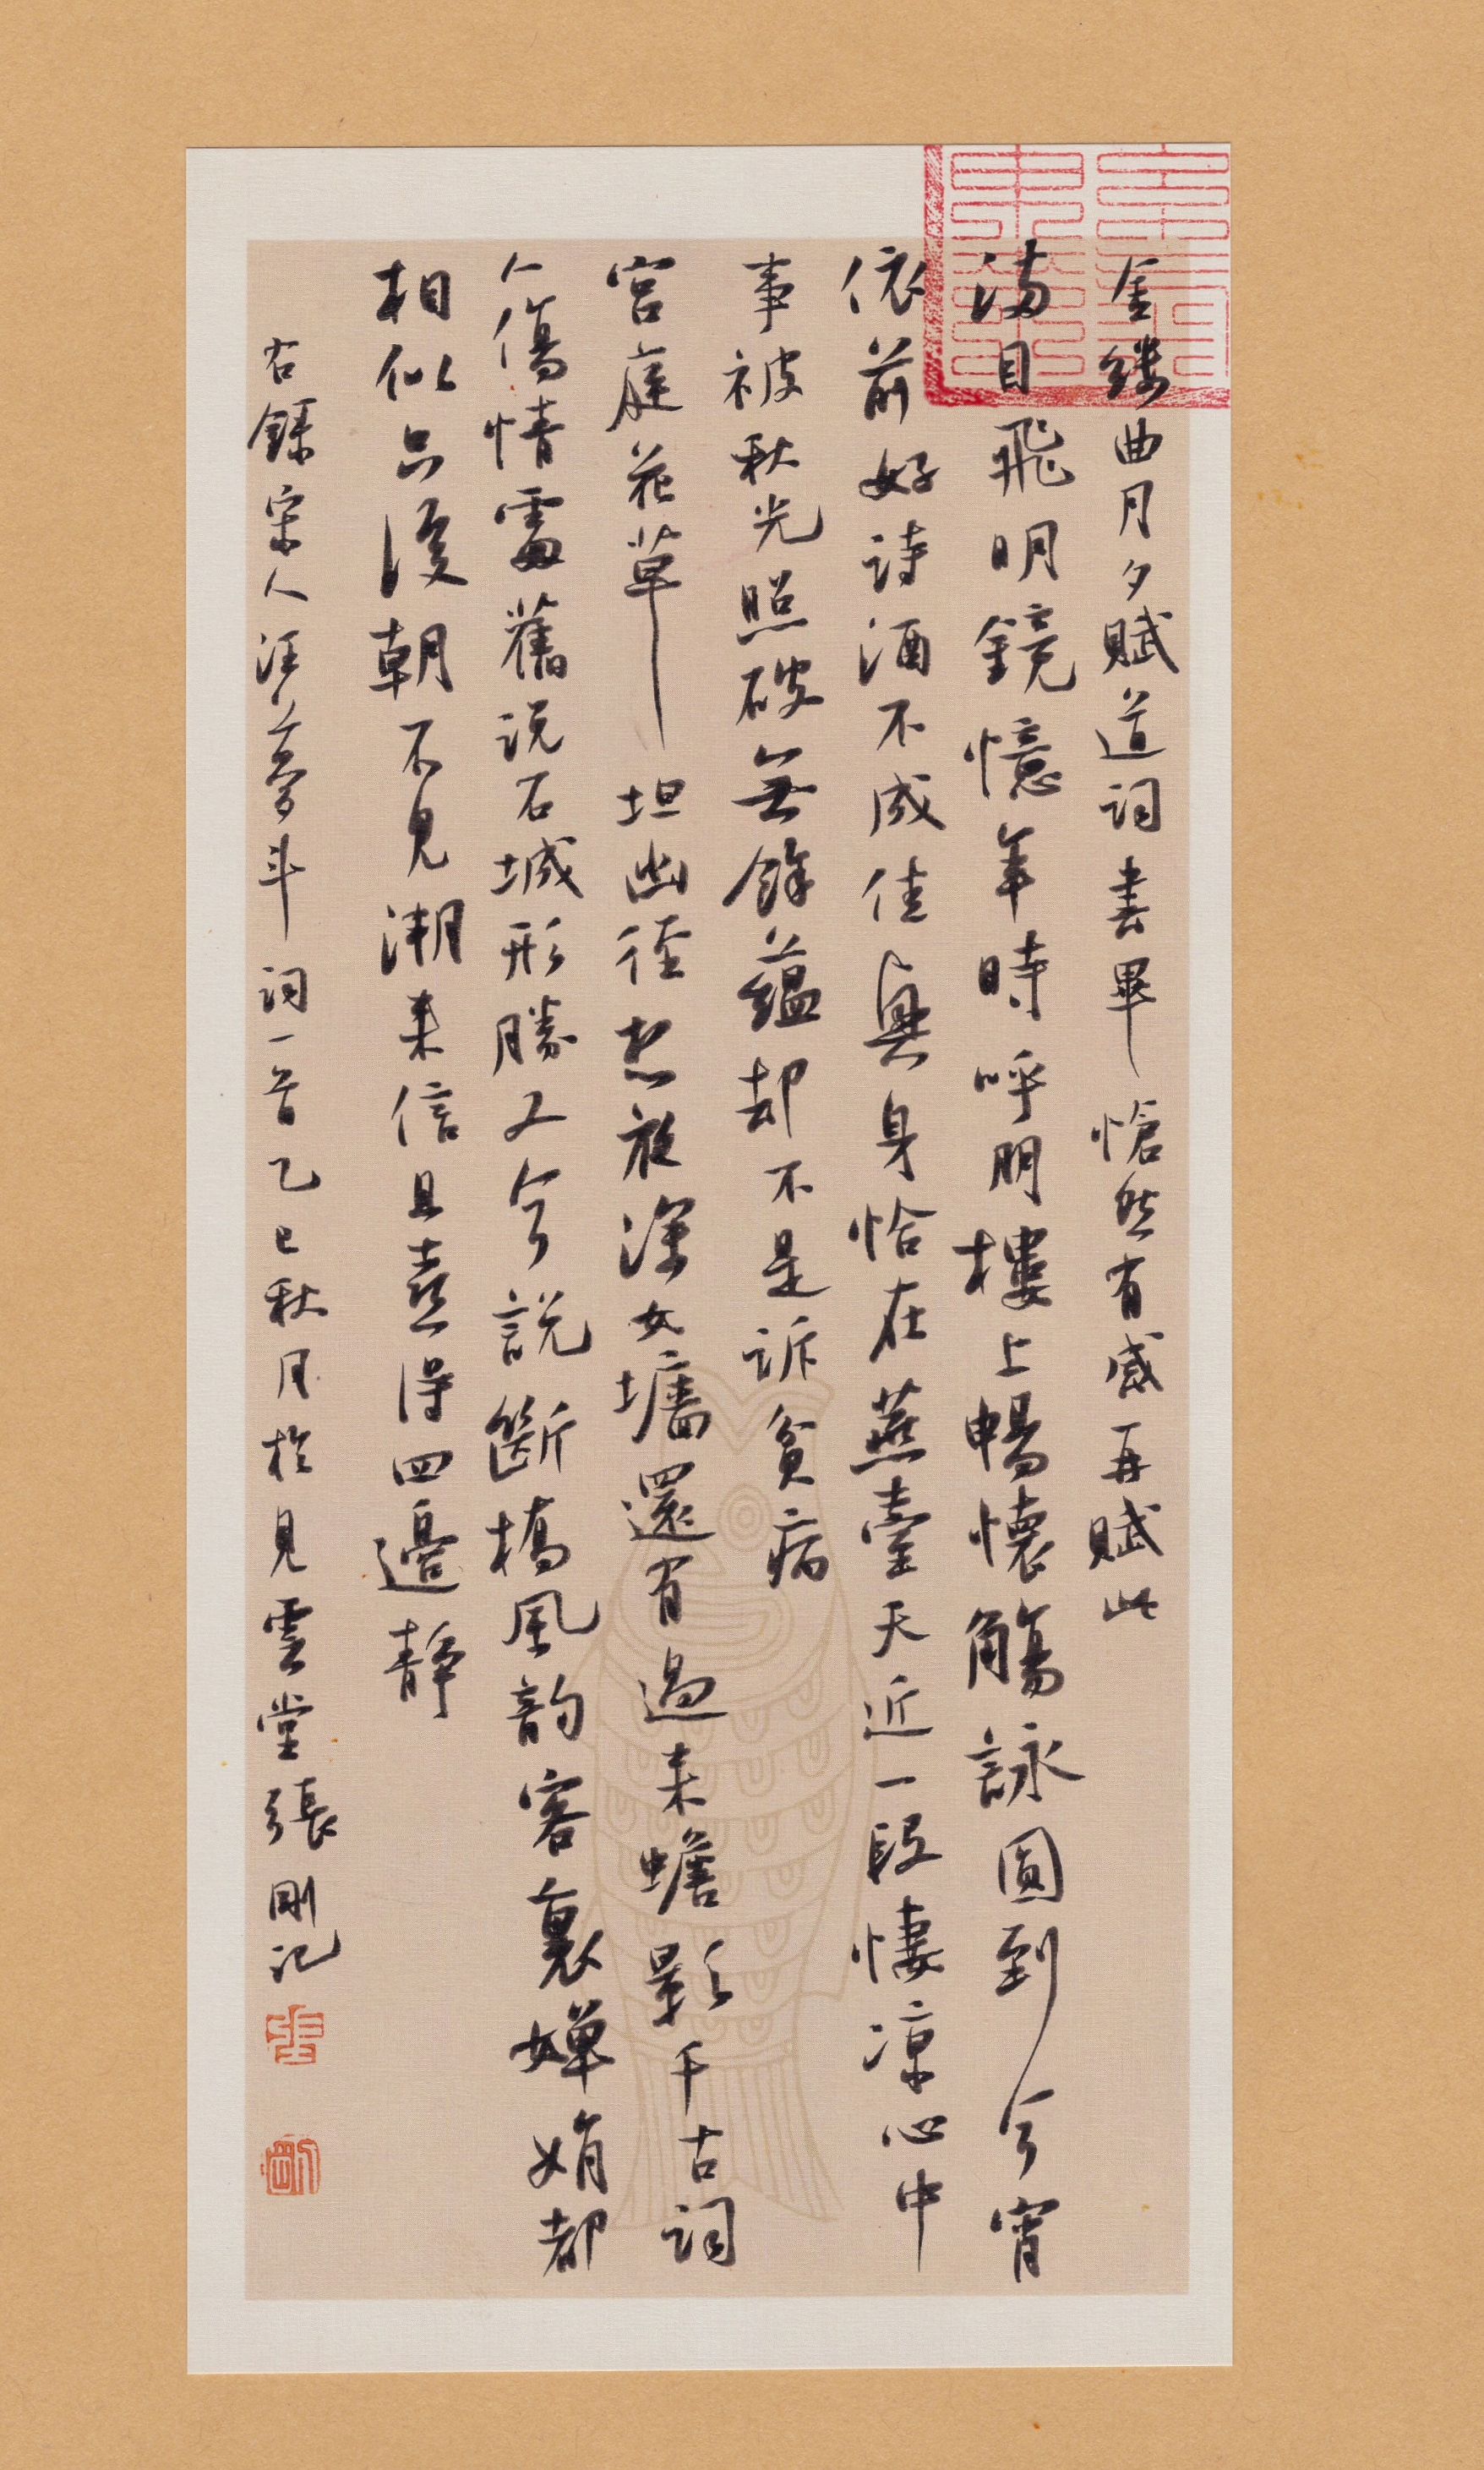 金縷曲月夕賦道詞書畢愴然有感再賦此
滿目飛明鏡憶年時呼朋樓上暢懷觴詠圓到今宵
依前好詩酒不成佳興身恰在燕臺天近一段悽涼心中
事被秋光照破無餘蘊却不是訴貧病
宮庭花草坦幽徑想夜深女墻還有過来蟾影千古詞
人傷情處舊説石城形勝又今說斷橋風韵客裏嬋娟都
相似只後朝不見潮来信且喜得四邊静
右録宋人汪夢斗詞一首乙巳秋月於見雲堂張剛記